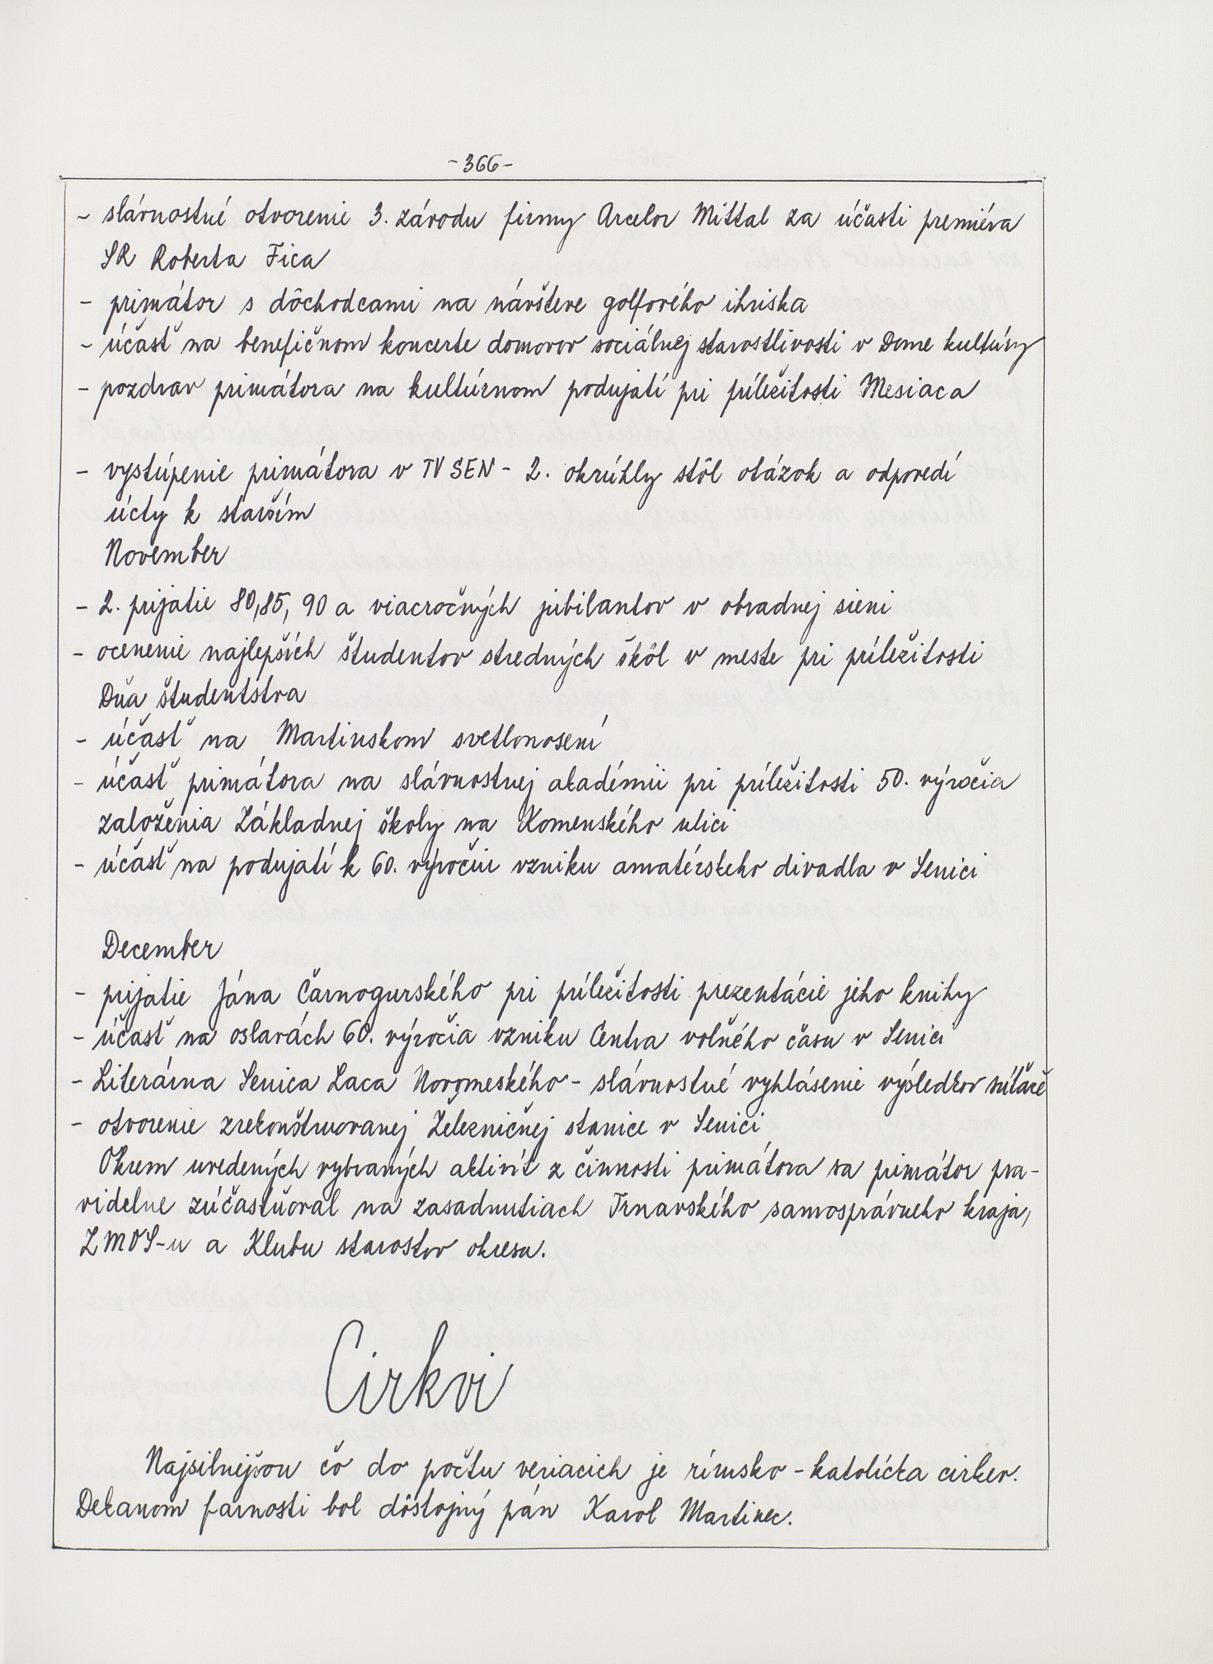 -366-
- slávnostné otvorenie 3. závodu firmy Arcelor Mittal za účasti premiéra
SR Roberta Fica
- primátor s dôchodcami na návšteve golfového ihriska
- účasť na benefičnom koncerte domovov sociálnej starostlivosti v Dome kultúry
- pozdrav primátora na kultúrnom podujatí pri príležitosti Mesiaca
- vystúpenie primátora v TV SEN - 2. okrúhly stôl otázok a odpovedí
úcty k starším
November
- 2. prijatie 80,85, 90 a viacročných jubilantov v obradnej sieni
- ocenenie najlepších študentov stredných škôl v meste pri príležitosti
Dňa študentstva
- účasť na Martinskom svetlonosení
- účasť primátora na slávnostnej akadémii pri príležitosti 50. výročia
založenia Základnej školy na Komenského ulici
- účasť na podujatí k 60. výročiu vzniku amatérskeho divadla v Senici
December
- prijatie Jána Čarnogurského pri príležitosti prezentácie jeho knihy
- účasť na oslavách 60. výročia vzniku Centra voľného času v Senici
- Literárna Senica Laca Novomeského - slávnostné vyhlásenie výsledkov súťaže
- otvorenie zrekonštruovanej Železničnej stanice v Senici
Okrem uvedených vybraných aktivít z činnosti primátora sa primátor pra-
videlne zúčastňoval na zasadnutiach Trnavského samosprávneho kraja,
ZMOS-u a Klubu starostov okresu.
Cirkvi
Najsilnejšou čo do počtu veriacich je rímsko - katolícka cirkev.
Dekanom farnosti bol dôstojný pán Karol Martinec.